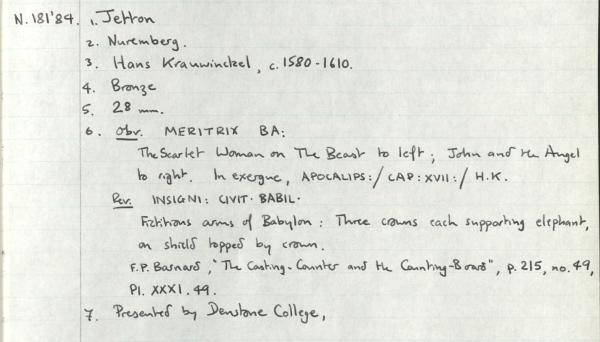 N. 181'84. 1. Jetton
2. Nuremberg.
3. Hans Krauwinckel, c. 1580-1610.
4. Bronze
5. 28 mm.
6. Obv. MERITRIX BA:
The Scarlet Woman on The Beast to left; John and the Angel
to right. In exergue, APOCALIPS:/ CAP: XVII:/ H.K.
Rev. INSIGNI: CIVIT· BABIL·
Fictitious arms of Babylon: Three crowns each supporting elephant,
on shield topped by crown.
F.P. Barnard, "The Casting-Counter and the Counting-Board", p. 215, no. 49,
Pl. XXXI. 49.
7. Presented by Denstone College,